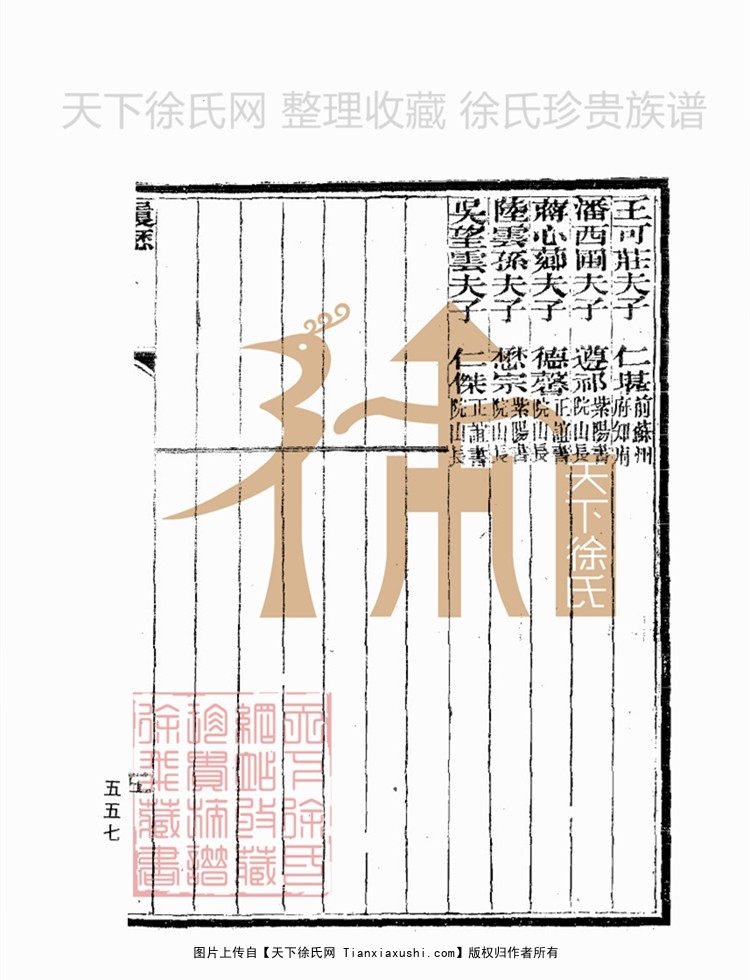 天下徐氏网 整理收藏 徐氏珍贵族谱
王可莊夫子 仁堪 前蘇州府知府
潘西圃夫子 遵祁 紫陽書院山長
蔣心薌夫子 德馨 正誼書院山長
陸雲孫夫子 懋宗 紫陽書院山長
吳望雲夫子 仁傑 正誼書院山長
履歷
五
五五七
天下徐氏
天下徐氏
網站收藏
珍貴族譜
徐飛藏書
图片上传自【天下徐氏网 Tianxiaxushi.com】版权归作者所有